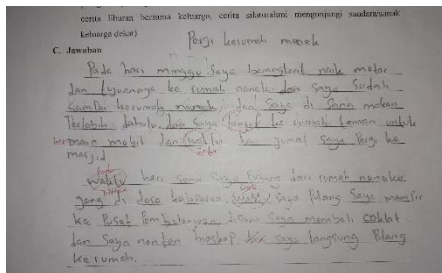 cerita liburan bersama keluarga, cerita silaturahmi mengunjungi saudara/sanak
keluarga dekat)
Pergi kerumah nenek
C. Jawaban
Pada hari minggu Saya berangkat naik motor
dan tujuannya ke rumah nenek dan Saya Sudah
Sampai kerumah nenek, dan Saya di Sana makan
Terlebih dahulu, dan saya lanjut ke rumah teman untuk
ber mobil dan hari jumat Saya Pergi ke
masjid
waktu hari Saya Pulang dari rumah nenek
yang di desa Saya Pulang Saya mampir
ke Pusat Perbelanjaan disana Saya membeli coklat
dan Saya nonton bioskop saya langsung Pulang
kerumah.